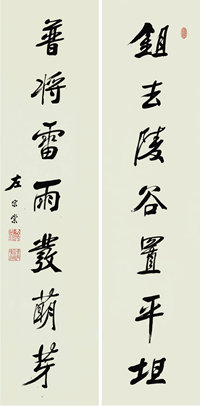 鉏去陵谷置平坦
普將雷雨發萌芽
左宗棠